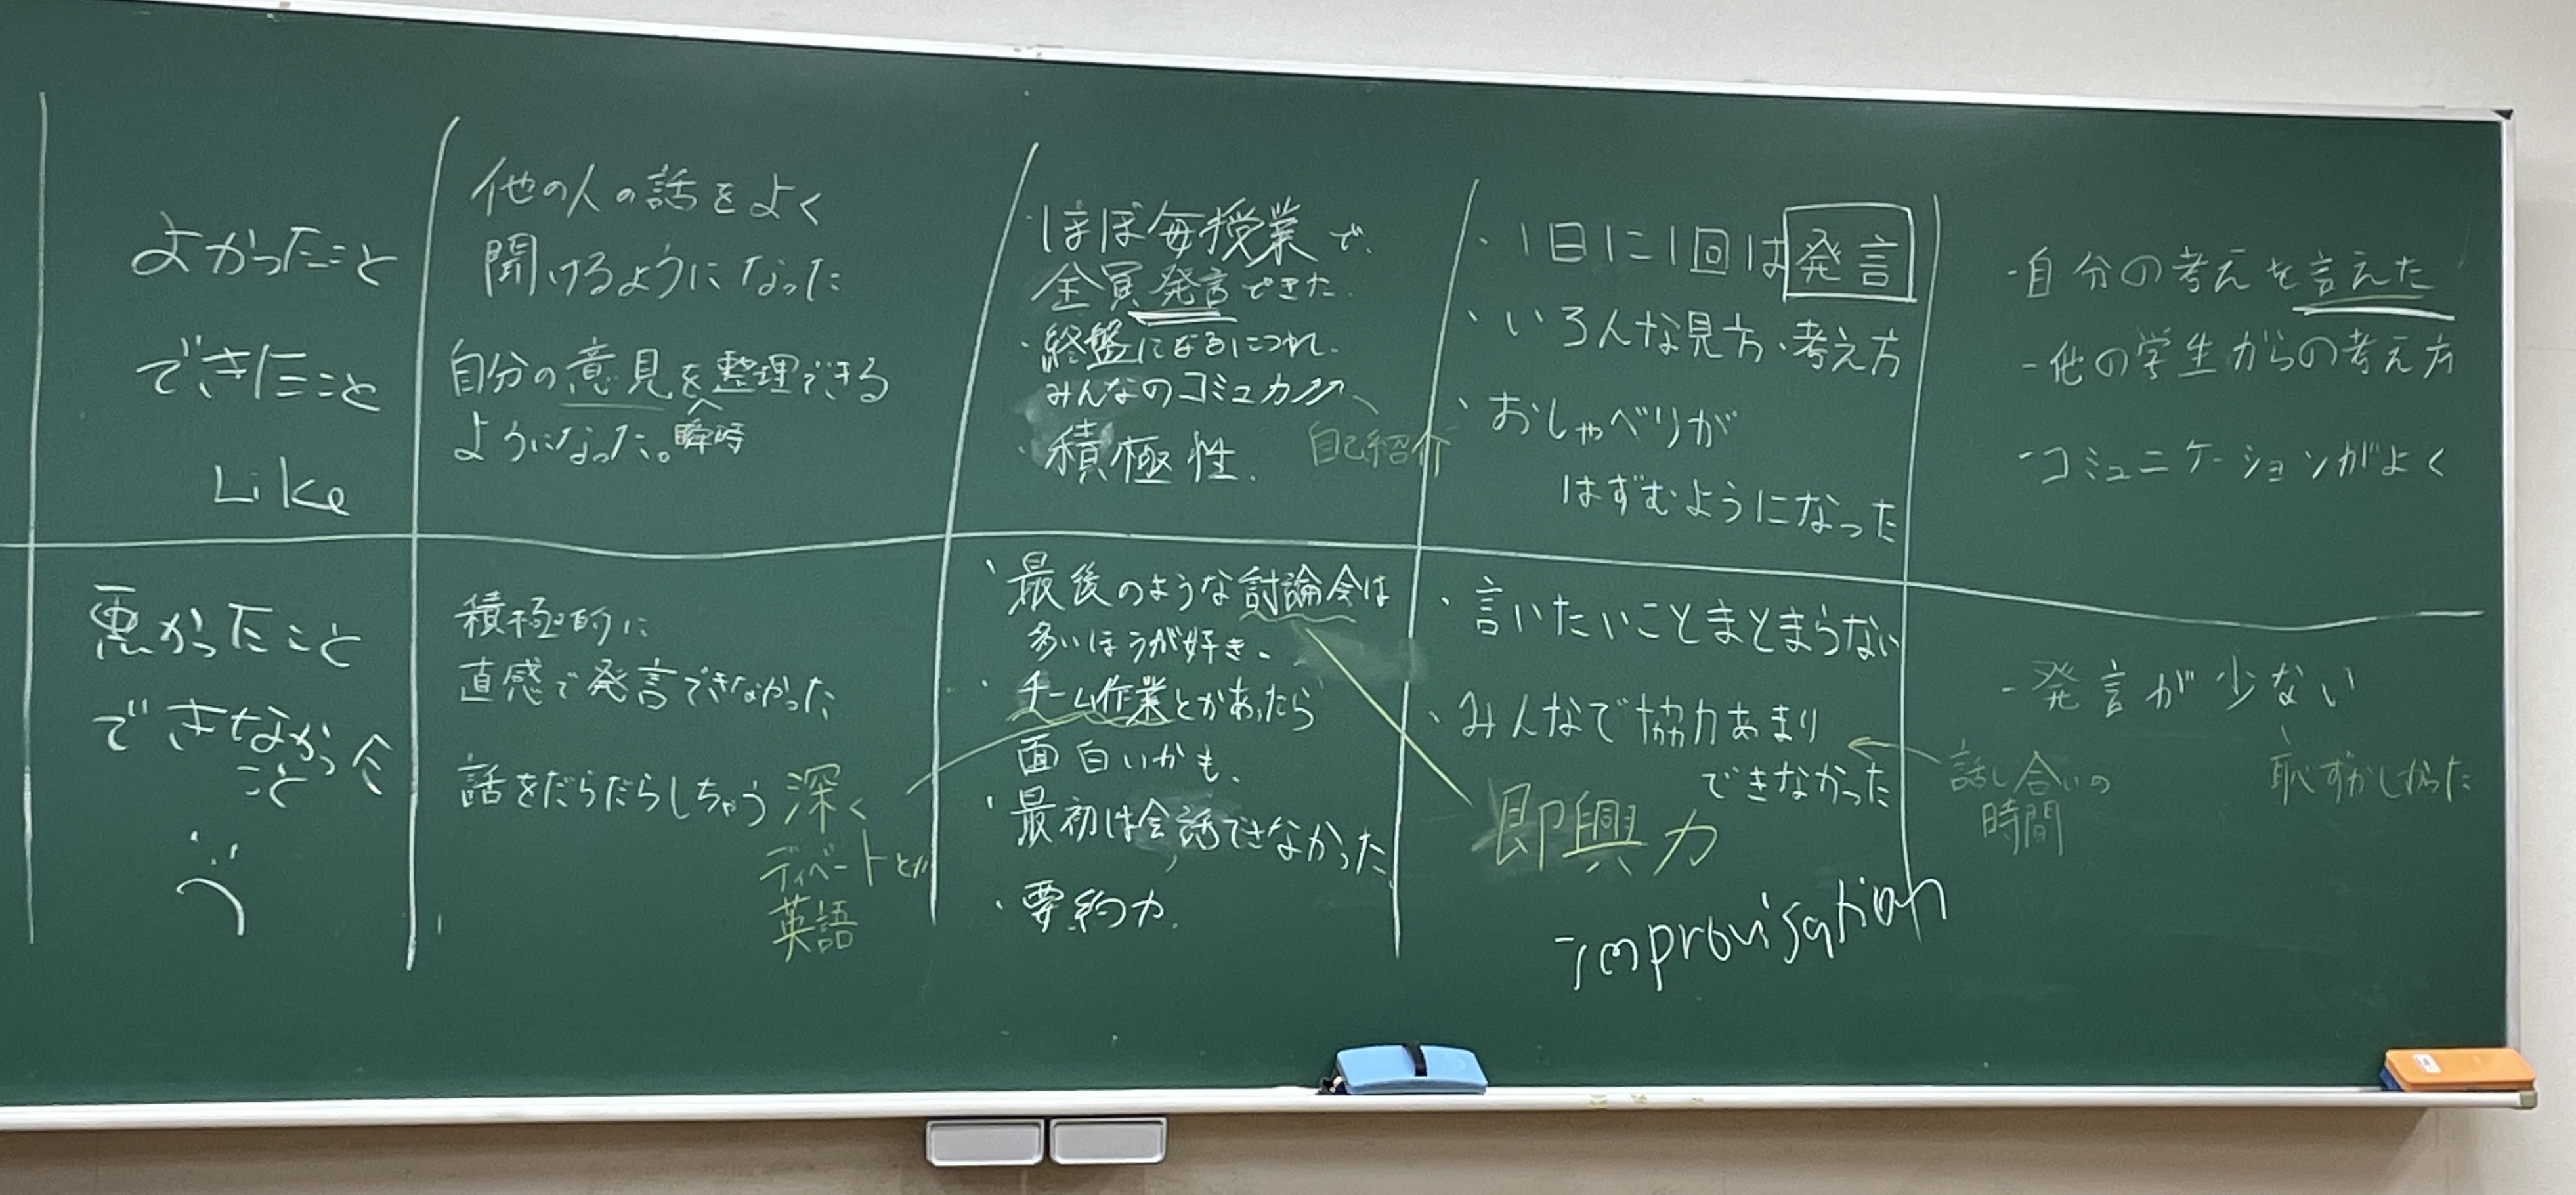 よかったこと
できたこと
Like
他の人の話をよく
聞けるようになった
自分の意見を整理できる
ようになった。瞬時
・ほぼ毎授業で、
全員発言できた.
・終盤になるにつれ、
みんなのコミュ力↗↗
・積極性.
自己紹介
・1日に1回は発言
・いろんな見方・考え方
・おしゃべりが
はずむようになった
-自分の考えを言えた
-他の学生からの考え方
-コミュニケーションがよく
悪かったこと
できなかった
こと
積極的に
直感で発言できなかった
話をだらだらしちゃう
深く
ディベートとか
英語
・最後のような討論会は
多いほうが好き、
・チーム作業とかあったら
面白いかも、
・最初は会話できなかった
・要約力.
・言いたいことまとまらない
・みんなで協力あまり
できなかった
即興力
improvisation
-発言が少ない
恥ずかしかった
話し合いの
時間